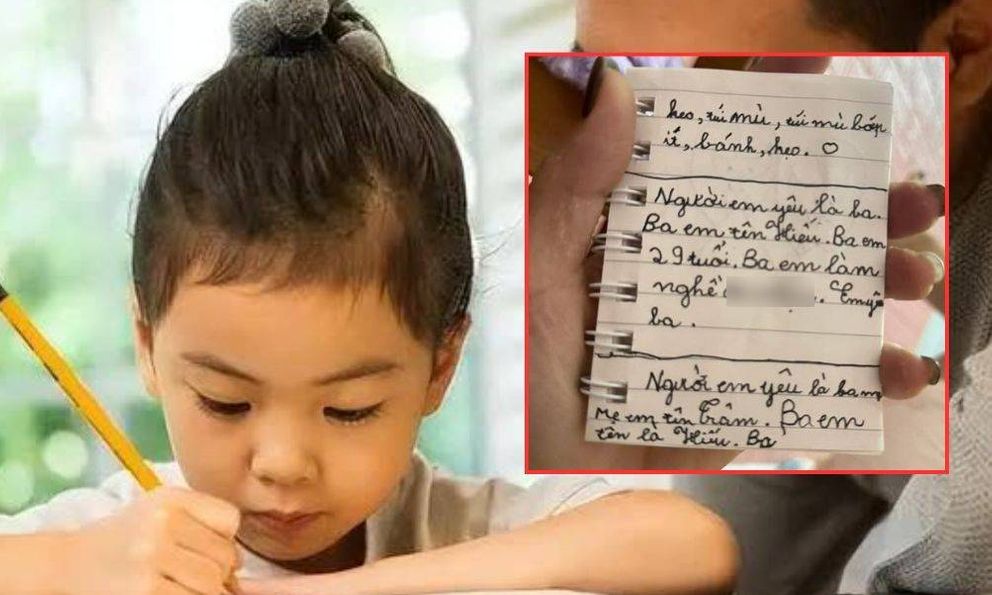 heo, túi mù, túi mù bóp
ít, bánh, heo. ♡
Người em yêu là ba.
Ba em tên Hiếu. Ba em
29 tuổi. Ba em làm
nghề . Em yêu
ba.
Người em yêu là ba m
Mẹ em tên Trâm. Ba em
tên là Hiếu. Ba